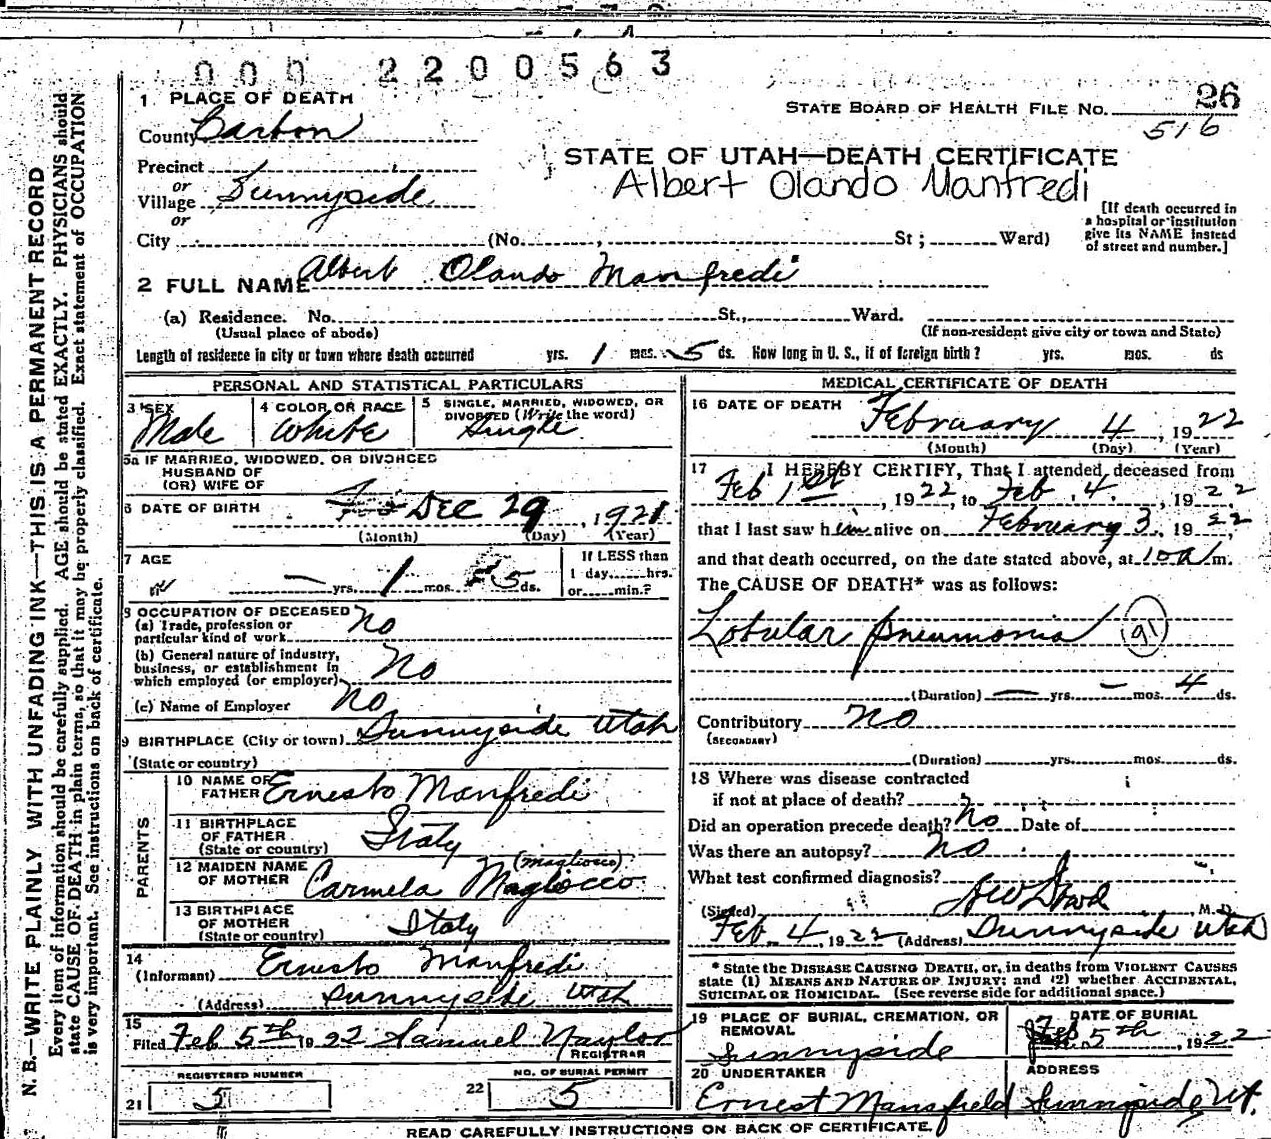 000 2200563
26
1 PLACE OF DEATH
STATE BOARD OF HEALTH FILE NO.
516
County Carbon
STATE OF UTAH—DEATH CERTIFICATE
Precinct
Albert Olando Manfredi
or
Village Sunnyside
or
[If death occurred in
a hospital or institution
give its NAME instead
of street and number.]
City (No. , St ; Ward)
2 FULL NAME Albert Olando Manfredi
(a) Residence. No. St., Ward.
(Usual place of abode) (If non-resident give city or town and State)
Length of residence in city or town where death occurred yrs. 1 mos. 5 ds. How long in U. S., if of foreign birth? yrs. mos. ds
PERSONAL AND STATISTICAL PARTICULARS
3 SEX
Male
4 COLOR OR RACE
White
5 SINGLE, MARRIED, WIDOWED, OR
DIVORCED (Write the word)
Single
5a IF MARRIED, WIDOWED, OR DIVORCED
HUSBAND OF
(OR) WIFE OF
6 DATE OF BIRTH Dec 29, 1921
(Month) (Day) (Year)
7 AGE
— yrs. 1 mos. 5 ds.
If LESS than
1 day, hrs.
or min.?
8 OCCUPATION OF DECEASED
(a) Trade, profession or
particular kind of work No
(b) General nature of industry,
business, or establishment in
which employed (or employer) No
(c) Name of Employer No
9 BIRTHPLACE (City or town) Sunnyside Utah
(State or country)
PARENTS
10 NAME OF
FATHER Ernesto Manfredi
11 BIRTHPLACE
OF FATHER
(State or country) Italy
12 MAIDEN NAME
OF MOTHER Carmela Magliocco
(Magliocco)
13 BIRTHPLACE
OF MOTHER
(State or country) Italy
14
(Informant) Ernesto Manfredi
(Address) Sunnyside Utah
15
Filed Feb 5th 1922 Samuel Naylor
REGISTRAR
REGISTERED NUMBER
21 5
NO. OF BURIAL PERMIT
22 5
MEDICAL CERTIFICATE OF DEATH
16 DATE OF DEATH
February 4, 1922
(Month) (Day) (Year)
17 I HEREBY CERTIFY, That I attended deceased from
Feb 1st, 1922, to Feb. 4, 1922
that I last saw him alive on February 3, 1922,
and that death occurred, on the date stated above, at 10 a m.
The CAUSE OF DEATH* was as follows:
Lobular pneumonia 91
(Duration) — yrs. — mos. 4 ds.
Contributory No
(SECONDARY)
(Duration) yrs. mos. ds.
18 Where was disease contracted
if not at place of death?
Did an operation precede death? No Date of
Was there an autopsy? No
What test confirmed diagnosis?
(Signed) , M. D.
Feb. 4, 1922 (Address) Sunnyside Utah
* State the DISEASE CAUSING DEATH, or, in deaths from VIOLENT CAUSES
state (1) MEANS AND NATURE OF INJURY; and (2) whether ACCIDENTAL,
SUICIDAL OR HOMICIDAL. (See reverse side for additional space.)
19 PLACE OF BURIAL, CREMATION, OR
REMOVAL
Sunnyside
DATE OF BURIAL
Feb 5th, 1922
20 UNDERTAKER
Ernest Mansfield
ADDRESS
Sunnyside Ut.
READ CAREFULLY INSTRUCTIONS ON BACK OF CERTIFICATE.
N. B.—WRITE PLAINLY WITH UNFADING INK—THIS IS A PERMANENT RECORD
Every item of information should be carefully supplied. AGE should be stated EXACTLY. PHYSICIANS should
state CAUSE OF DEATH in plain terms, so that it may be properly classified. Exact statement of OCCUPATION
is very important. See instructions on back of certificate.